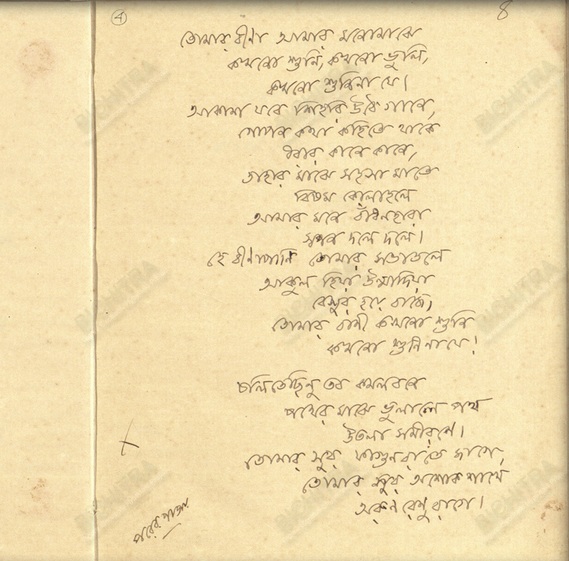 ④
৪
তোমার বীণা আমার মনোমাঝে
কখনো শুনি, কখনো ভুলি,
কখনো শুনিনা যে।
আকাশ যবে শিহরি উঠে গানে,
গোপন কথা কহিতে থাকে
ধরার কানে কানে,
তাহার মাঝে সহসা মাতে
বিষম কোলাহলে
আমার মনে বাঁধনহারা
স্বপন দলে দলে।
হে বীণাপাণি তোমার সভাতলে
আকুল হিয়া উন্মাদিয়া
বেসুর হয়ে বাজে,
তোমার বাণী কখনো শুনি
কখনো শুনিনা যে!
চলিতেছিনু তব কমলবনে
পথের মাঝে ভুলালে পথ
উতলা সমীরণে।
তোমার সুর ফাগুনরাতে জাগে,
তোমার সুর অশোক শাখে
অরুণ রেণু রাগে।
পরের পাতা
BICHITRA